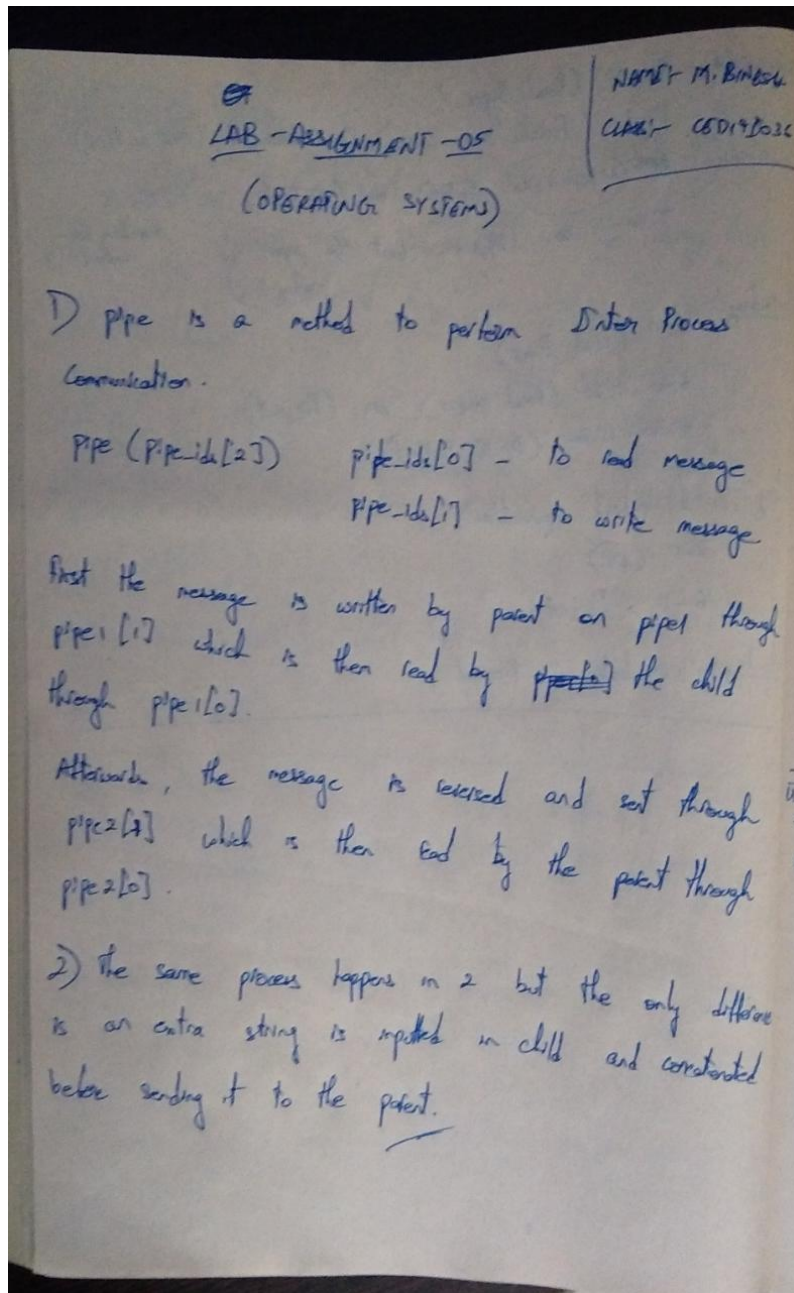 LAB - ASSIGNMENT - 05
(OPERATING SYSTEMS)
NAME:- M. BINESH
CLASS:- CED19I036
1) pipe is a method to perform Inter Process
Communication.
pipe (pipe_ids[2]) pipe_ids[0] - to read message
pipe_ids[1] - to write message
First the message is written by parent on pipe1 through
pipe1[1] which is then read by the child
through pipe1[0].
Afterwards, the message is reversed and sent through
pipe2[1] which is then read by the parent through
pipe2[0].
2) The same process happens in 2 but the only difference
is an extra string is inputted in child and concatenated
before sending it to the parent.